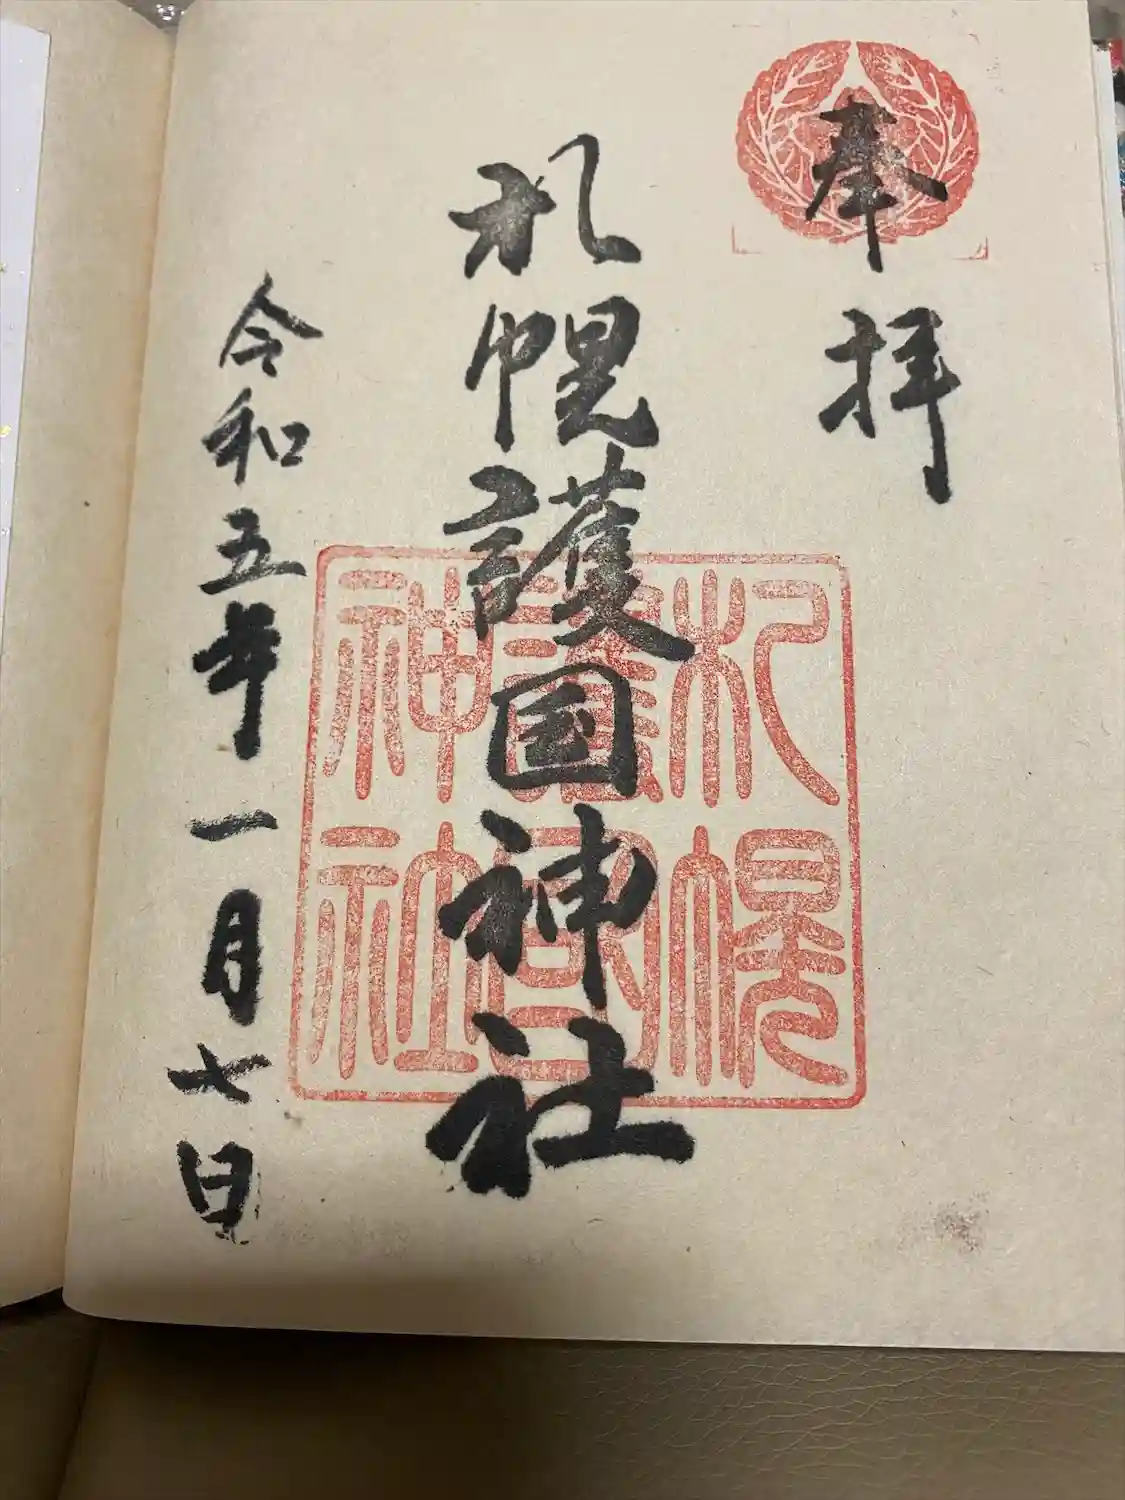 奉拝
札幌護国神社
札幌
護國
神社
令和五年一月七日